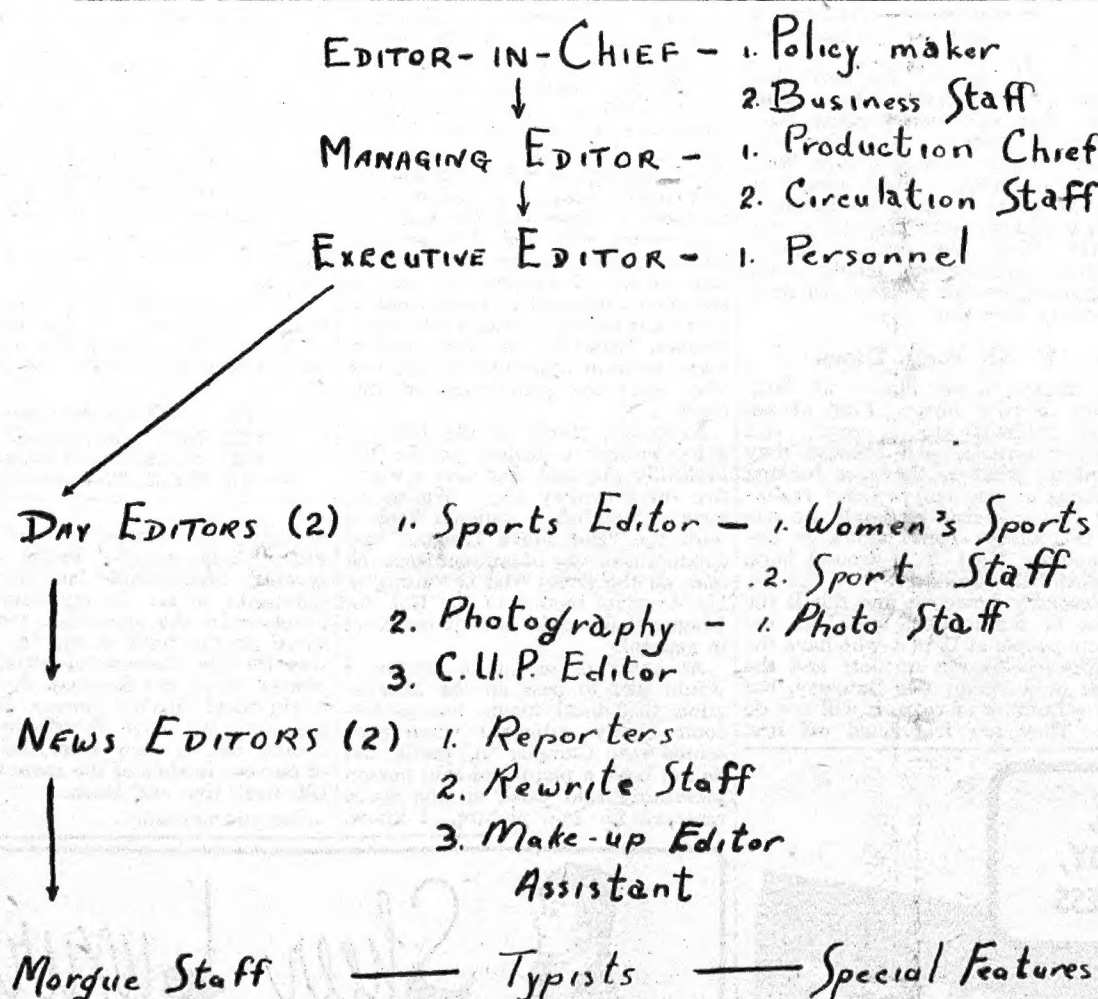 EDITOR-IN-CHIEF - 1. Policy maker
2. Business Staff
MANAGING EDITOR - 1. Production Chief
2. Circulation Staff
EXECUTIVE EDITOR - 1. Personnel
DAY EDITORS (2) 1. Sports Editor - 1. Women's Sports
2. Sport Staff
2. Photography - 1. Photo Staff
3. C.U.P. Editor
NEWS EDITORS (2) 1. Reporters
2. Rewrite Staff
3. Make-up Editor
Assistant
Morgue Staff — Typists — Special Features